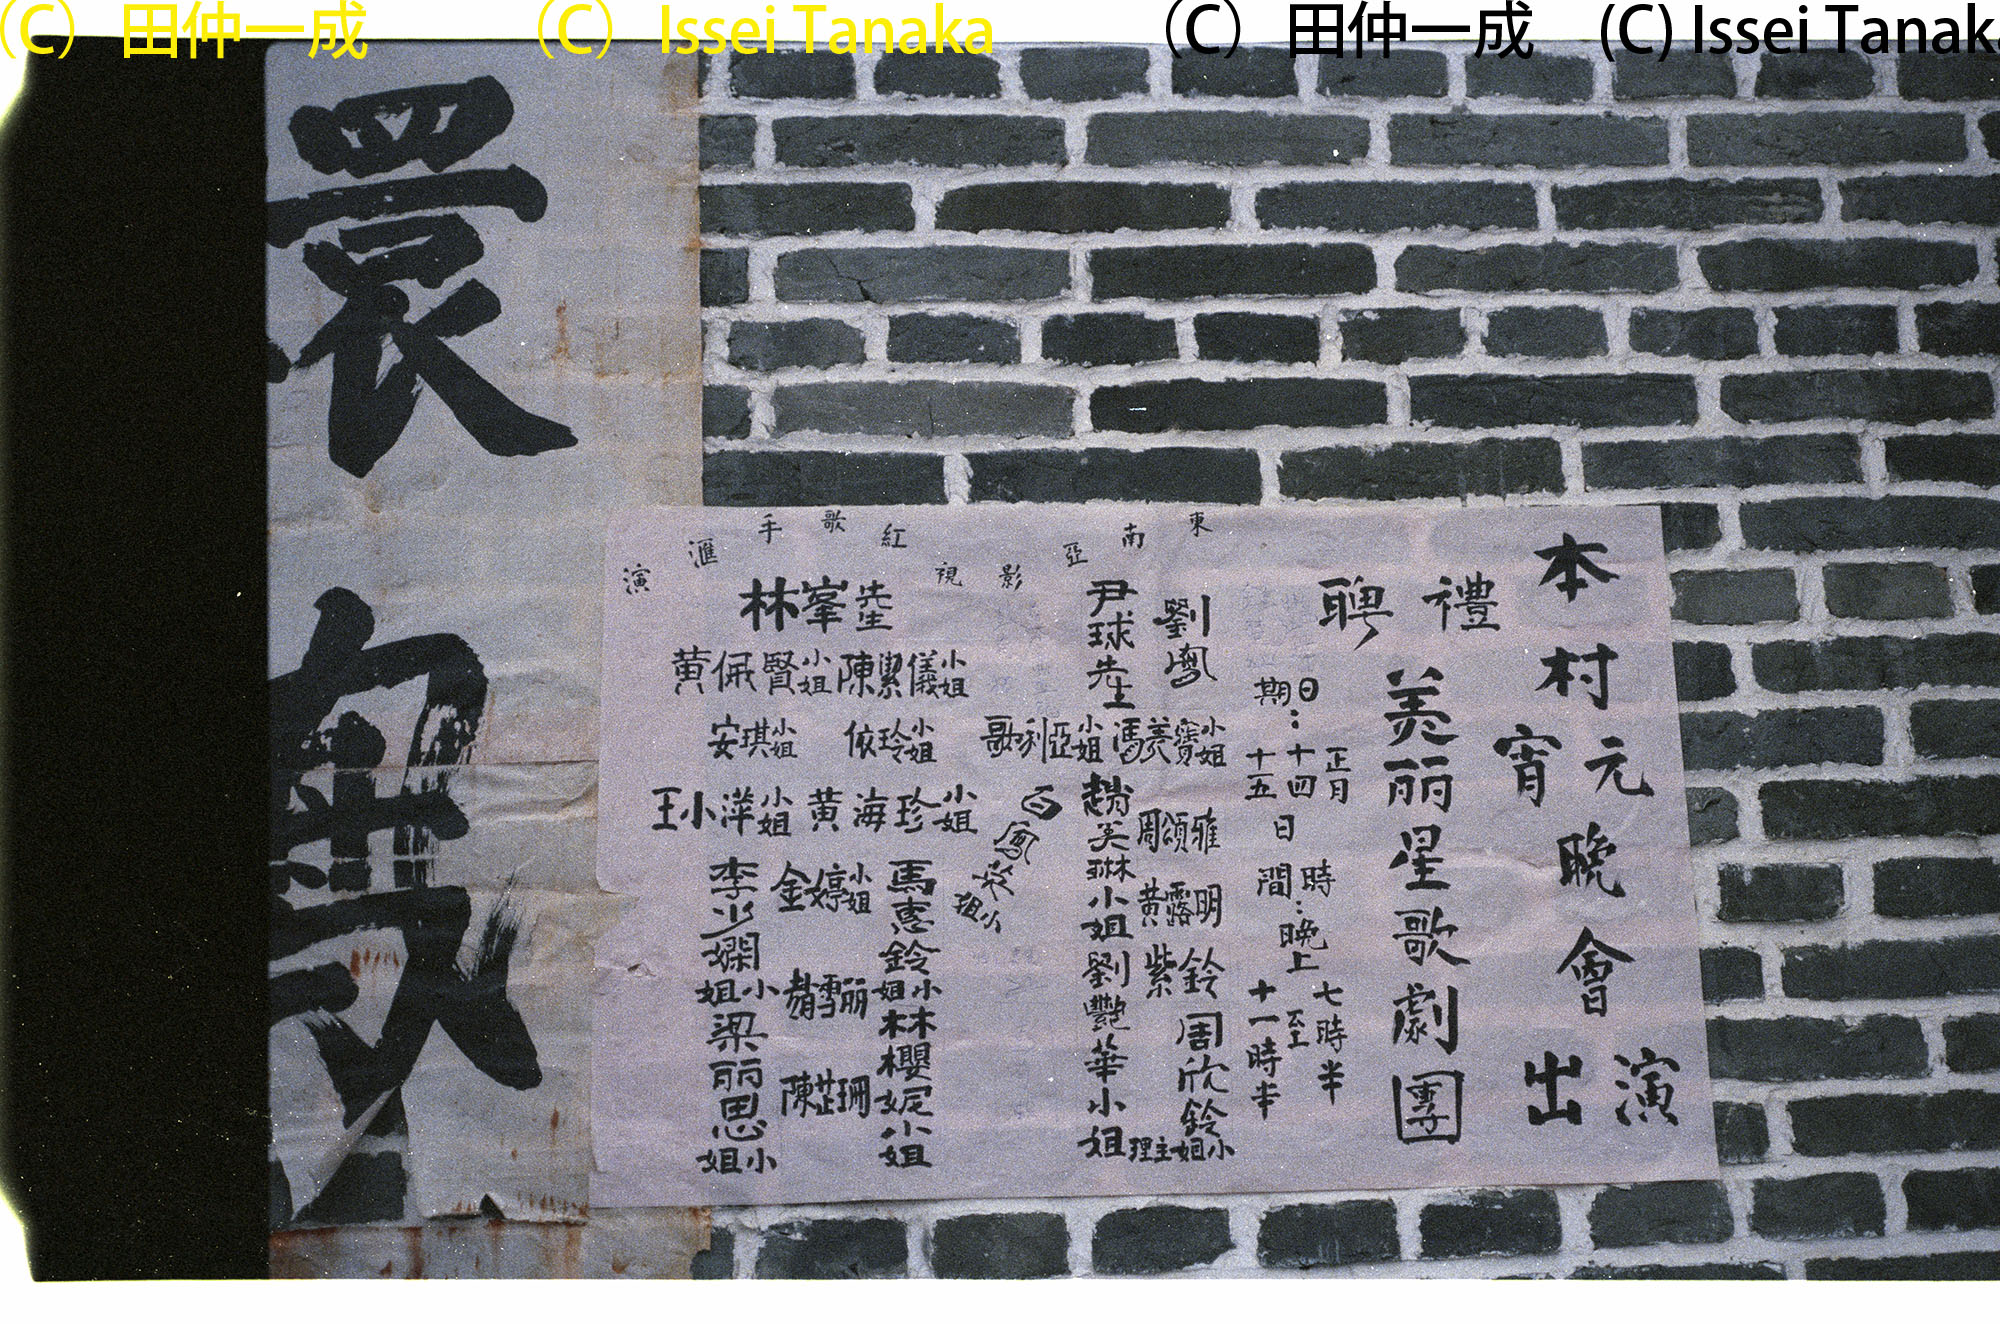 (C) 田仲一成
(C) Issei Tanaka
(C) 田仲一成
(C) Issei Tanaka
本村元宵晚會演出
禮聘
美丽星歌劇團
日期：正月十四十五日
時間：晚上七時半至十一時半
東南亞影視紅歌手滙演
劉鳳
尹球先生
馮美寶小姐
歌利亞小姐
趙美琳小姐
劉艷華小姐
周頌雅
黃露明
紫鈴
周欣鈴小姐主理
林峯先生
陳潔儀小姐
黃佩賢小姐
依玲小姐
安琪小姐
黃海珍小姐
王小洋小姐
馬惠鈴小姐
林櫻妮小姐
金婷小姐
雪丽
陳芷珊
李少嫻小姐
梁丽思小姐